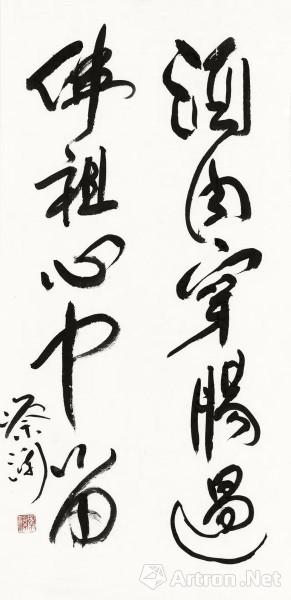 酒肉穿腸過
佛祖心中留
蔡瀾
Artron.Net